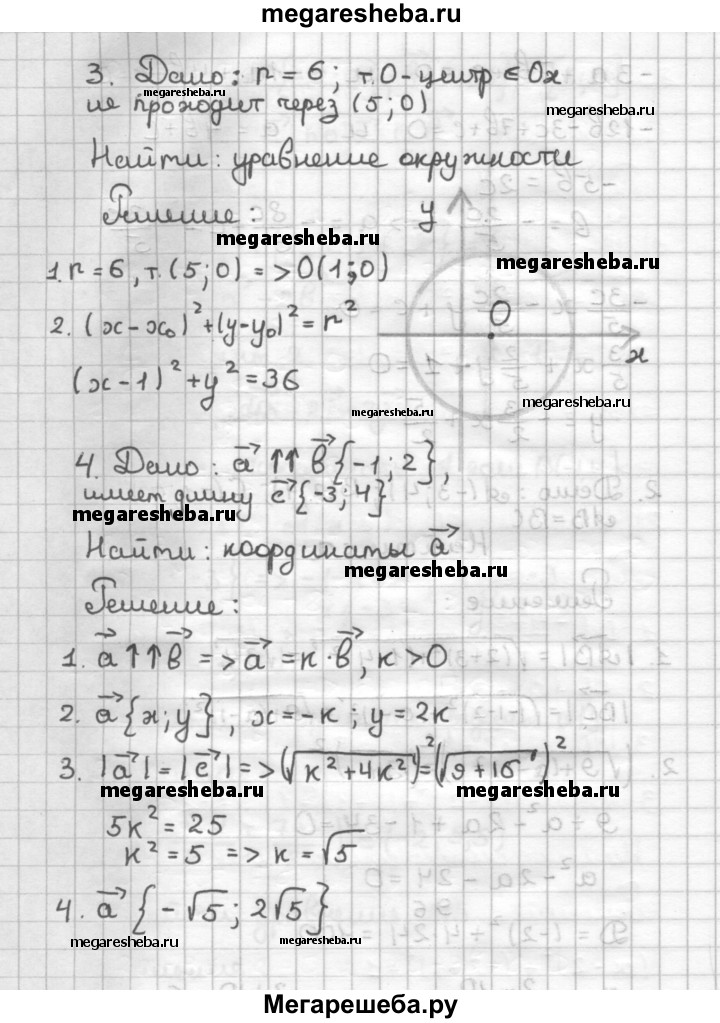 megaresheba.ru
3. Дано: r = 6; т.O - центр ∈ Ox
не проходит через (5;0)
megaresheba.ru
megaresheba.ru
Найти: уравнение окружности
Решение:
y
megaresheba.ru
megaresheba.ru
1. r = 6, т.(5;0) => O(1;0)
O
2. (x-x₀)² + (y-y₀)² = r²
x
(x-1)² + y² = 36
megaresheba.ru
megaresheba.ru
4. Дано: a⃗ ↑↑ b⃗ {-1;2},
имеет длину c⃗ {-3;4}
megaresheba.ru
Найти: координаты a⃗
megaresheba.ru
Решение:
1. a⃗ ↑↑ b⃗ => a⃗ = k · b⃗, k > 0
2. a⃗ {x;y}, x = -k; y = 2k
3. |a⃗| = |c⃗| => (√(k² + 4k²))² = (√(9 + 16))²
megaresheba.ru
megaresheba.ru
5k² = 25
k² = 5 => k = √5
4. a⃗ {-√5; 2√5}
megaresheba.ru
megaresheba.ru
Мегарешеба.ру